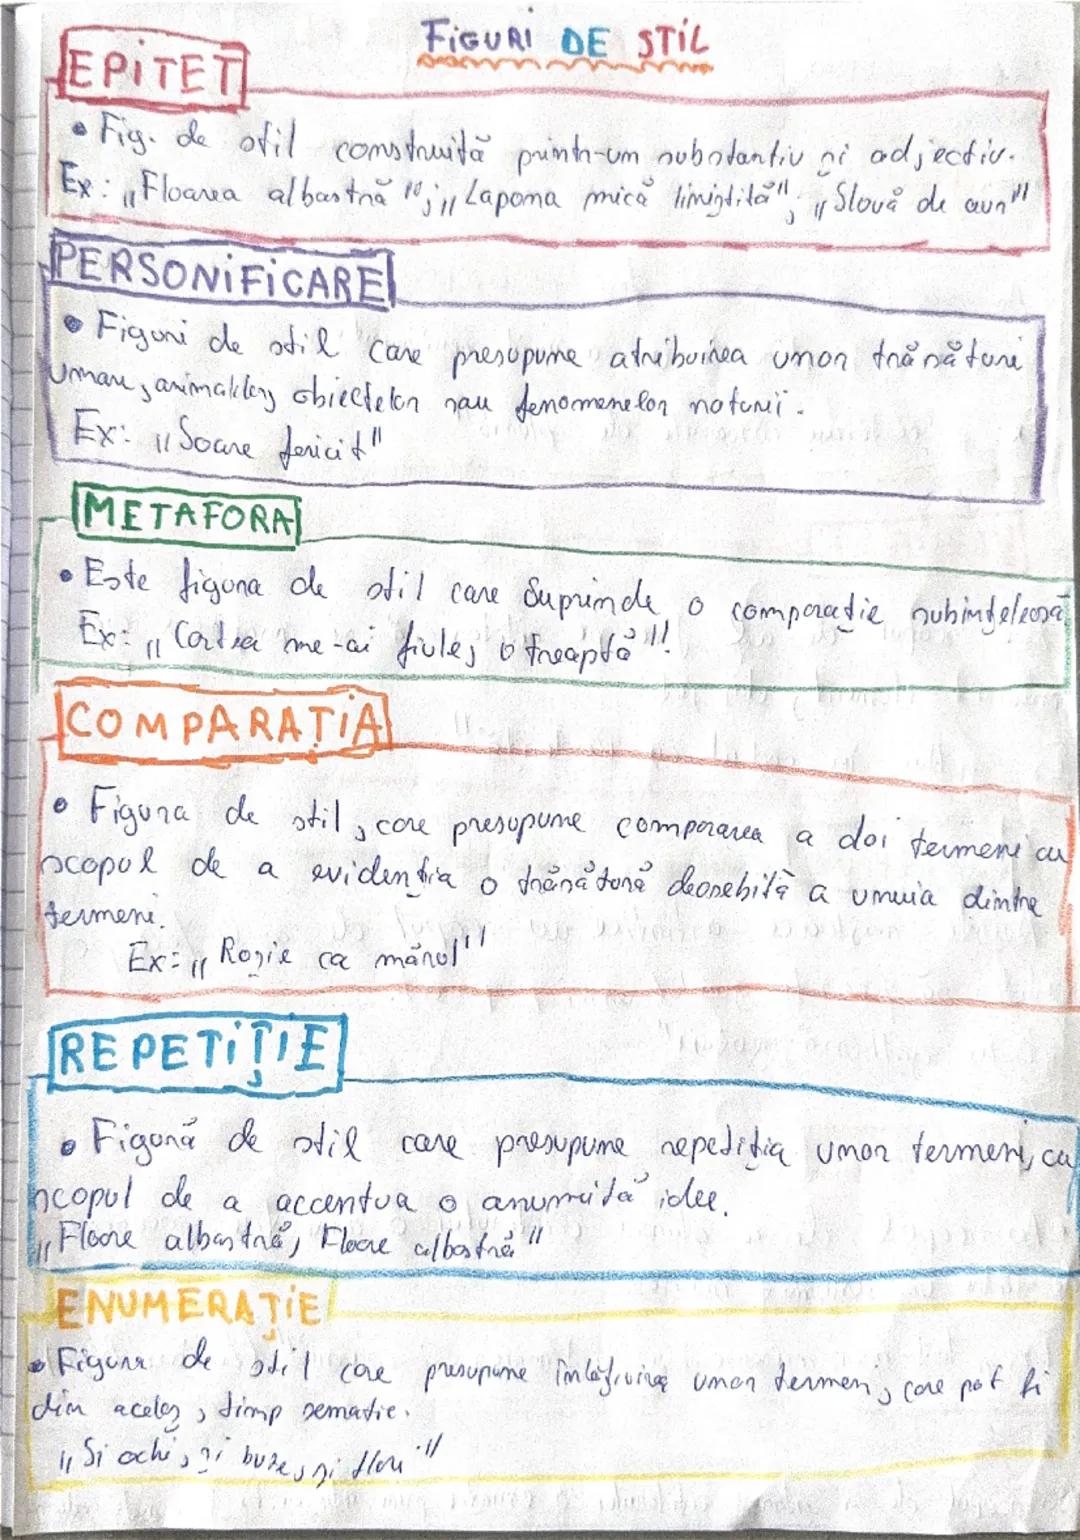 FIGURI DE STIL
EPITET
• Fig. de stil construită printr-un substantiv și adjectiv.
Ex: „Floarea albastră"; „Lapoma mică liniștită"; „Slovă de aur"
PERSONIFICARE
• Figuri de stil care presupune atribuirea unor trăsături
umane, animalelor, obiectelor sau fenomenelor naturii.
Ex: „Soare fericit"
METAFORA
• Este figura de stil care Suprinde o comparație subînțeleasă
Ex: „Cartea me-ai fiule, o treaptă"!
COMPARAȚIA
• Figura de stil, care presupune compararea a doi termeni cu
scopul de a evidenția o trăsătură deosebită a unuia dintre
termeni.
Ex: „Roșie ca mărul"
REPETIȚIE
• Figură de stil care presupune repetiția unor termeni, cu
scopul de a accentua o anumită idee.
„Floare albastră, Floare albastră"
ENUMERAȚIE
• Figura de stil care presupune unor termeni, care pot fi
din același, timp sematic.
„Si ochi, și buze, și flori"